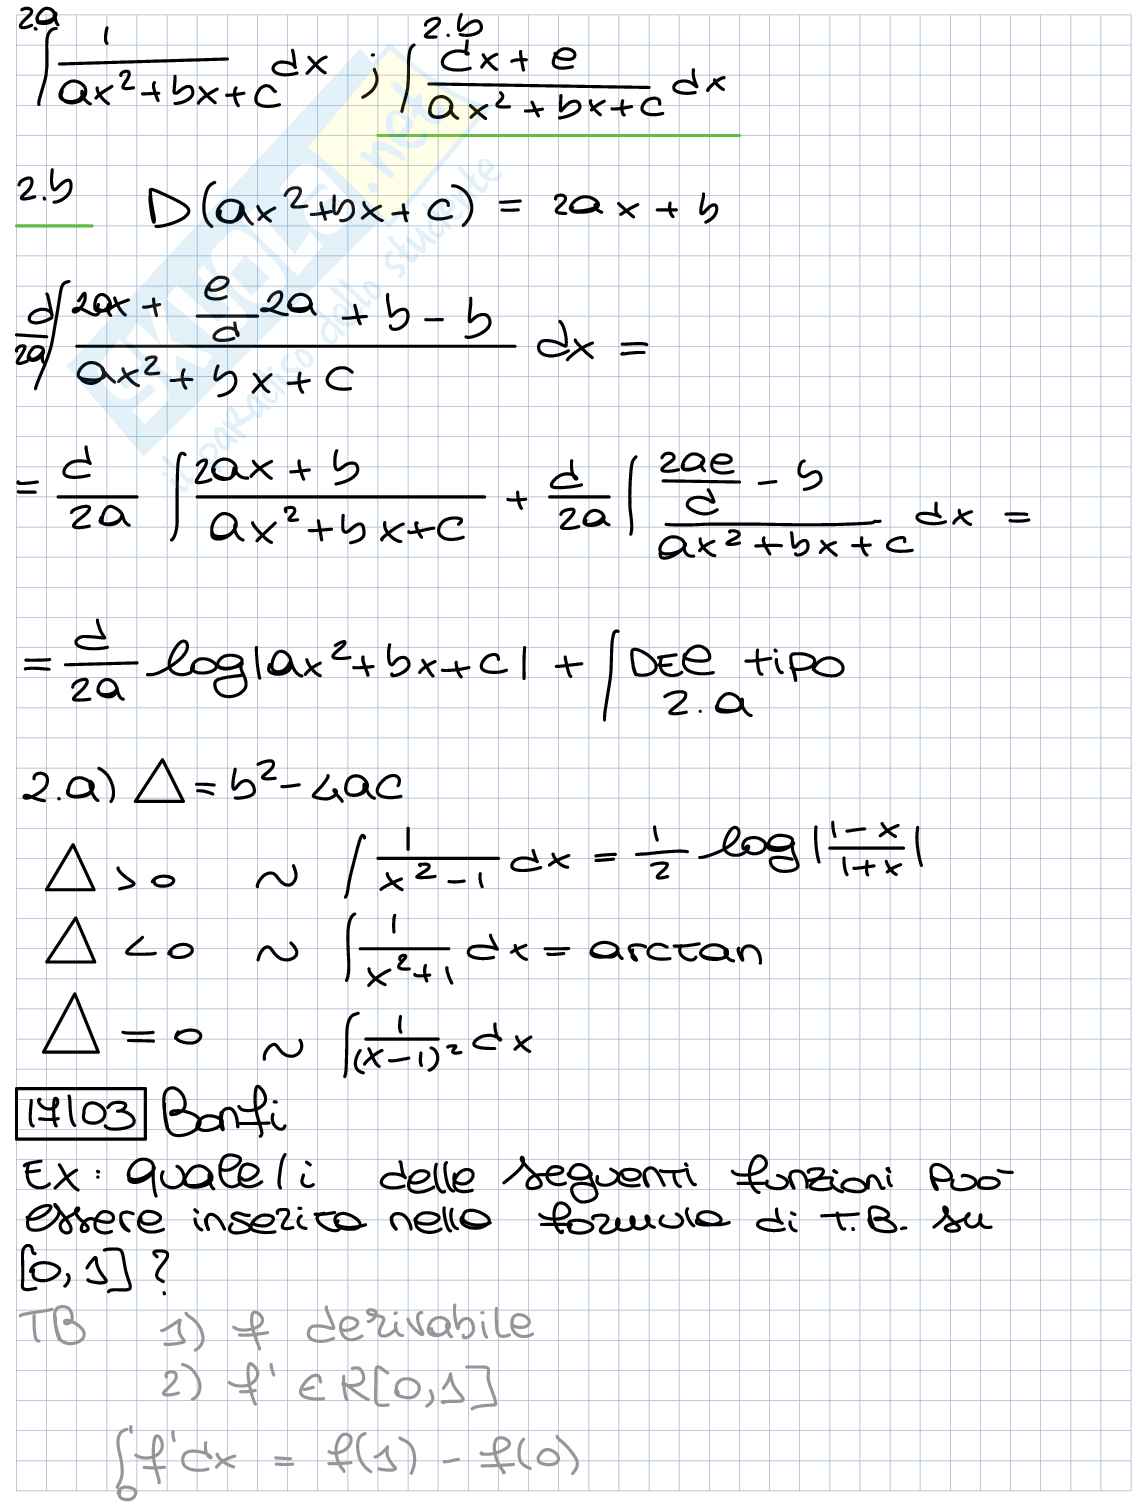 2.a ∫ 1/(ax²+bx+c) dx ; 2.b ∫ (dx+e)/(ax²+bx+c) dx
2.b D(ax²+bx+c) = 2ax+b
d/2a ∫ (2ax + e/d 2a + b - b)/(ax²+bx+c) dx =
= d/2a ∫ (2ax+b)/(ax²+bx+c) + d/2a ∫ (2ae/d - b)/(ax²+bx+c) dx =
= d/2a log|ax²+bx+c| + ∫ DEL tipo 2.a
2.a) △ = b²-4ac
△ >0 ~ ∫ 1/(x²-1) dx = 1/2 log|(1-x)/(1+x)|
△ <0 ~ ∫ 1/(x²+1) dx = arctan
△ = 0 ~ ∫ 1/(x-1)² dx
17/03 Bonfi
EX: quale/i delle seguenti funzioni può
essere inserita nella formula di T.B. su
[0,1] ?
TB 1) f derivabile
2) f' ∈ R[0,1]
∫₀¹ f'dx = f(1) - f(0)
SKUOLA.net
il paradiso dello studente